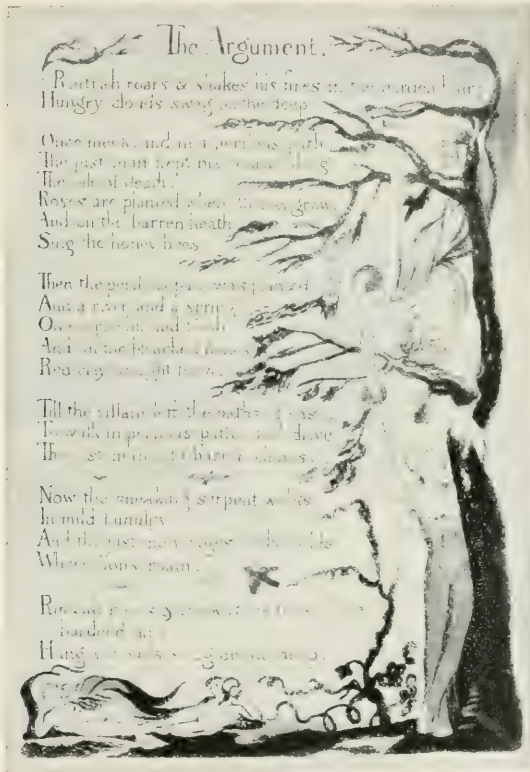 The Argument.
Rintrah roars & shakes his fires in the burdend air
Hungry clouds swag on the deep
Once meek, and in a perilous path,
The just man kept his course along
The vale of death.
Roses are planted where thorns grow
And on the barren heath
Sing the honey bees
Then the perilous path was planted
And a river and a spring
On and tomb
And on the bleached bones
Red clay brought forth
Till the villain left the paths of ease
To walk in perilous paths and drive
The just man into barren climes.
Now the sneaking serpent walks
In mild humility
And the just man rages in the wilds
Where lions roam.
Rintrah roars
burdend air
Hungry clouds swag on the deep